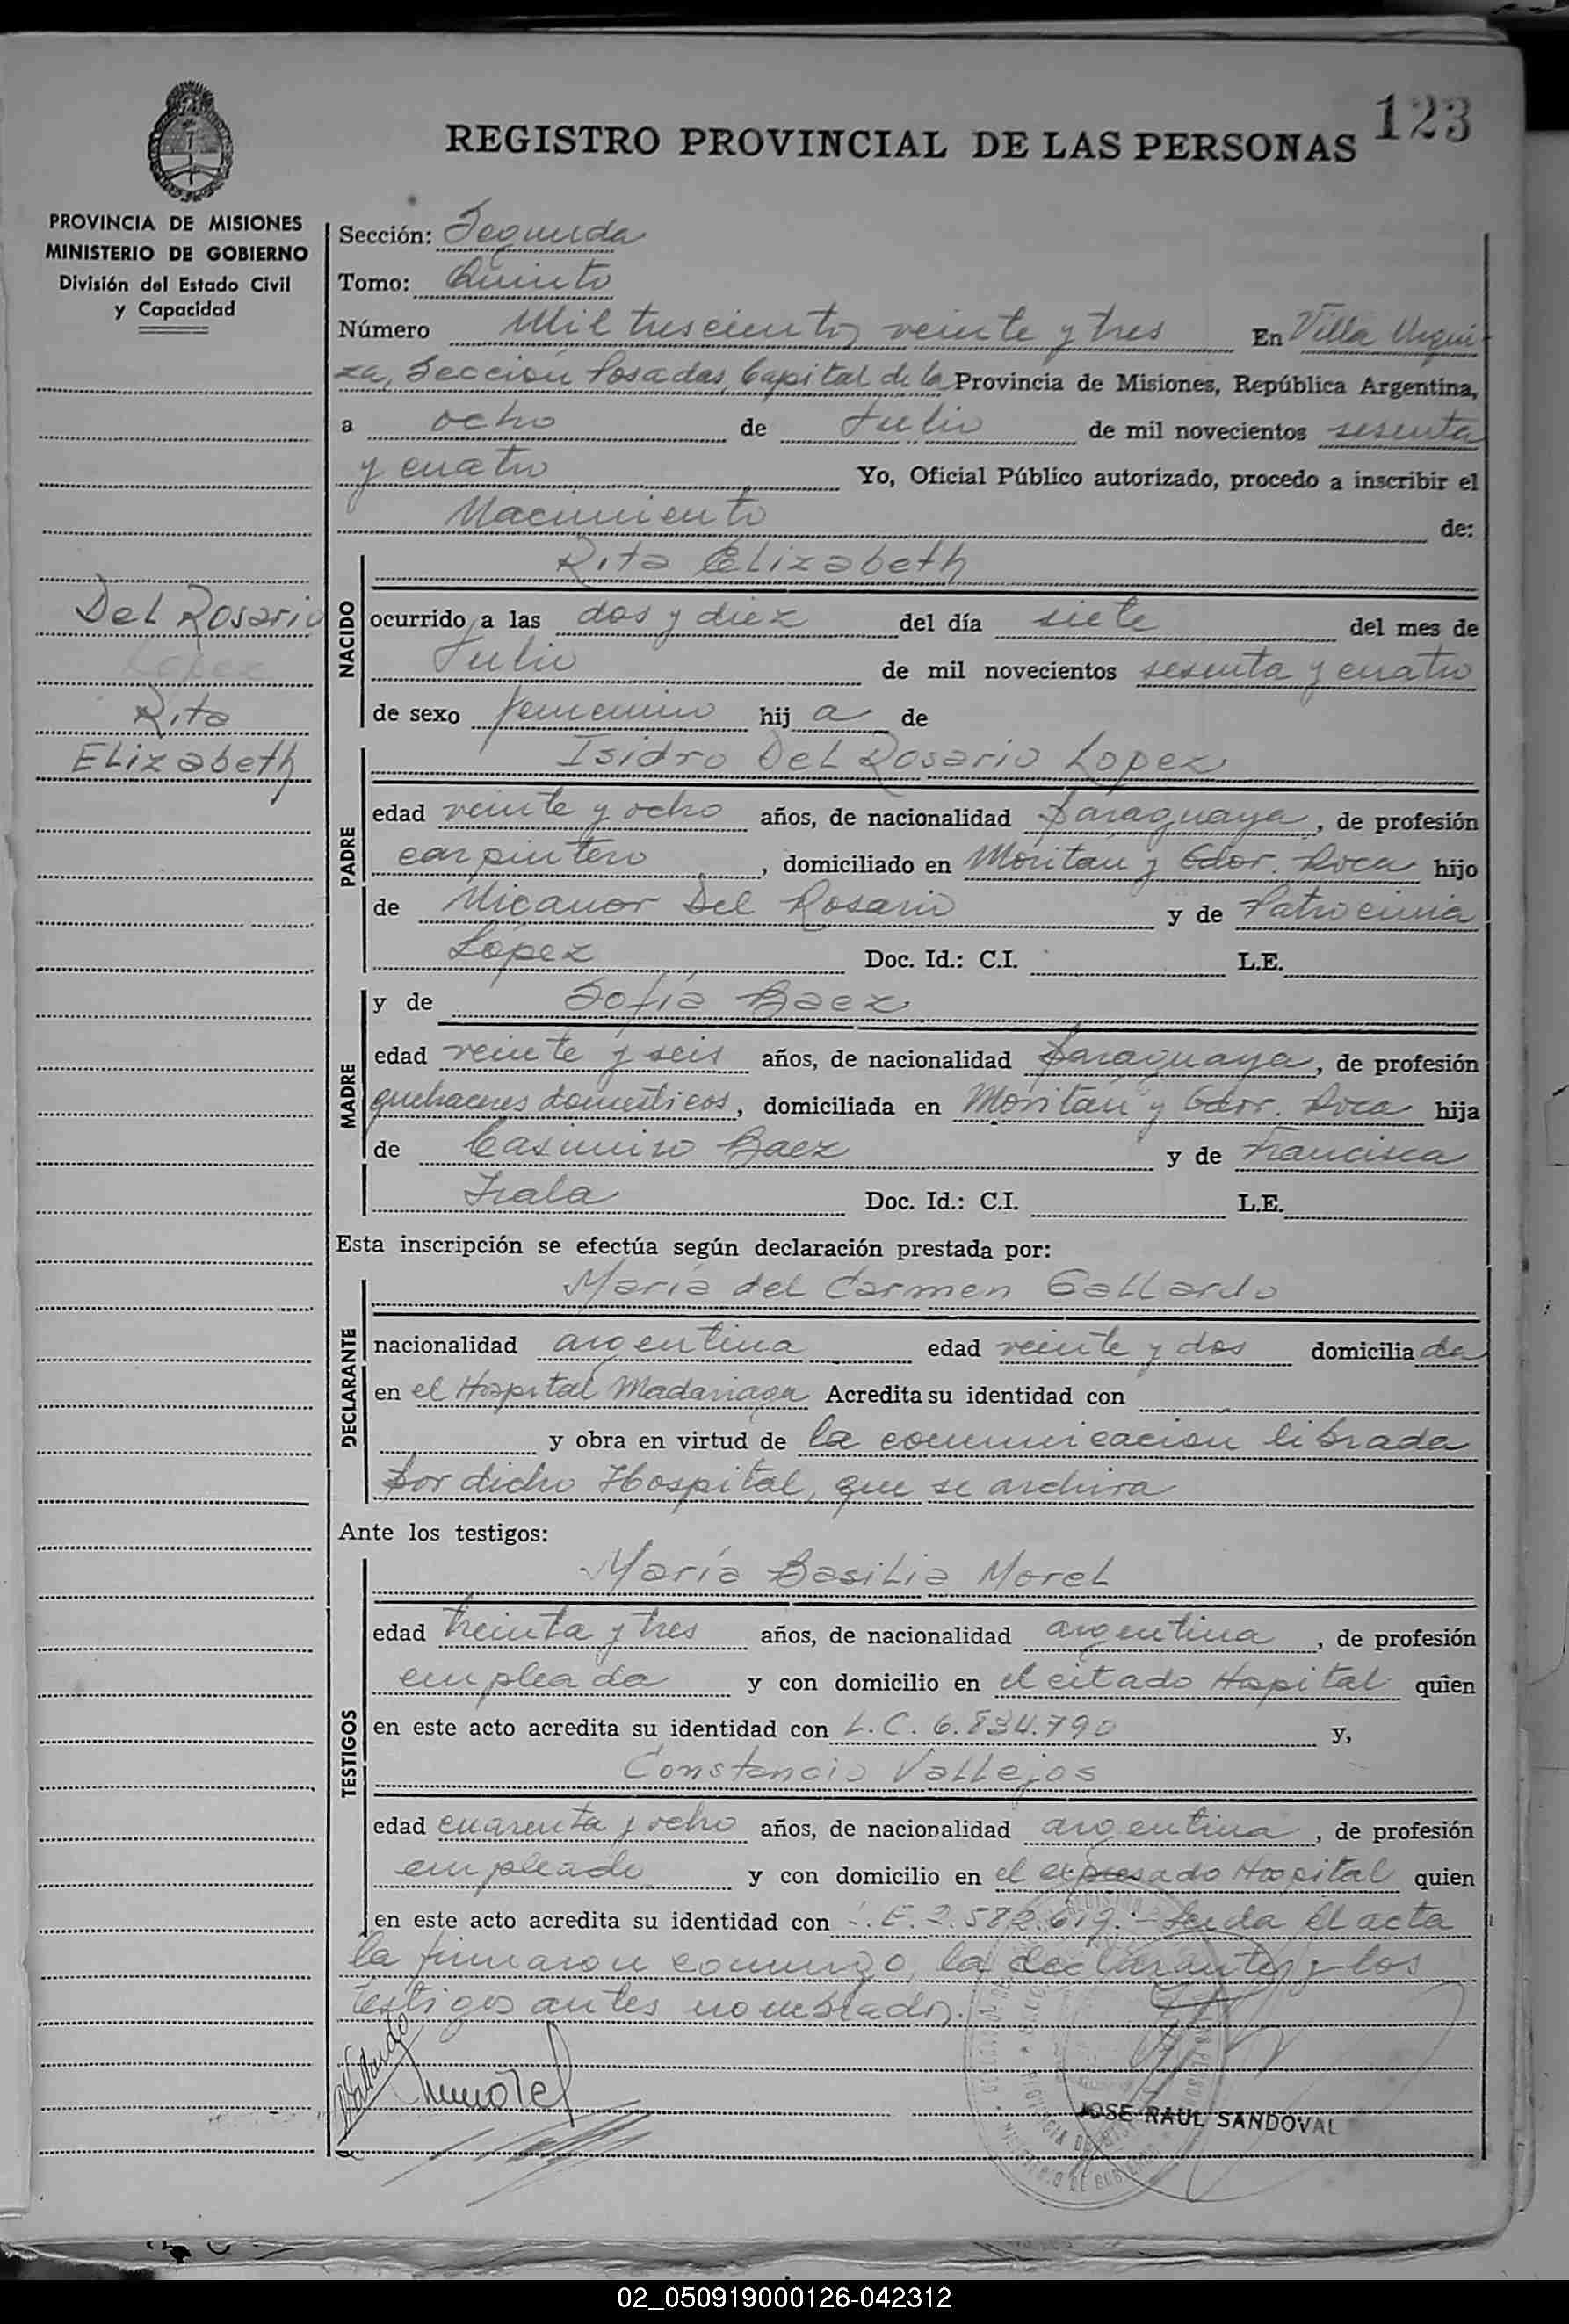 123
REGISTRO PROVINCIAL DE LAS PERSONAS
PROVINCIA DE MISIONES
MINISTERIO DE GOBIERNO
División del Estado Civil
y Capacidad
Sección: Segunda
Tomo: Quinto
Número Mil trescientos veinte y tres En Villa Urqui-
za, Sección Posadas, Capital de la Provincia de Misiones, República Argentina,
a ocho de Julio de mil novecientos sesenta
y cuatro Yo, Oficial Público autorizado, procedo a inscribir el
Nacimiento de:
Del Rosario
Lopez
Rita
Elizabeth
NACIDO
Rita Elizabeth
ocurrido a las dos y diez del día siete del mes de
Julio de mil novecientos sesenta y cuatro
de sexo femenino hij a de
PADRE
Isidro Del Rosario Lopez
edad veinte y ocho años, de nacionalidad paraguaya, de profesión
carpintero, domiciliado en Moritan y Gdor. Roca hijo
de Nicanor Del Rosario y de Patrocinia
López Doc. Id.: C.I. L.E.
MADRE
y de Sofía Baez
edad veinte y seis años, de nacionalidad paraguaya, de profesión
quehaceres domesticos, domiciliada en Moritan y Gdor. Roca hija
de Casimiro Baez y de Francisca
Irala Doc. Id.: C.I. L.E.
Esta inscripción se efectúa según declaración prestada por:
DECLARANTE
María del Carmen Gallardo
nacionalidad argentina edad veinte y dos domicilia da
en el Hospital Madariaga Acredita su identidad con
y obra en virtud de la comunicacion librada
por dicho Hospital, que se archiva
Ante los testigos:
TESTIGOS
María Basilia Morel
edad treinta y tres años, de nacionalidad argentina, de profesión
empleada y con domicilio en el citado Hospital quien
en este acto acredita su identidad con L.C. 6.834.790 y,
Constancio Vallejos
edad cuarenta y ocho años, de nacionalidad argentina, de profesión
empleado y con domicilio en el expresado Hospital quien
en este acto acredita su identidad con L.E. 2.582.619.- Leida el acta
la firmaron conmigo, la declarante y los
testigos antes nombrados.
Gallardo
mmorel
JOSE RAUL SANDOVAL
02_050919000126-042312